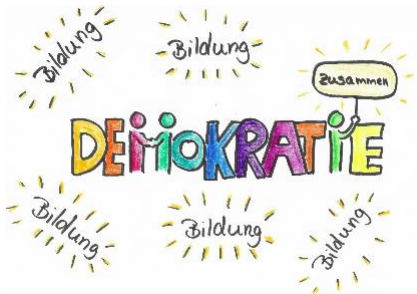 Bildung
Bildung
zusammen
DEMOKRATIE
Bildung
Bildung
Bildung